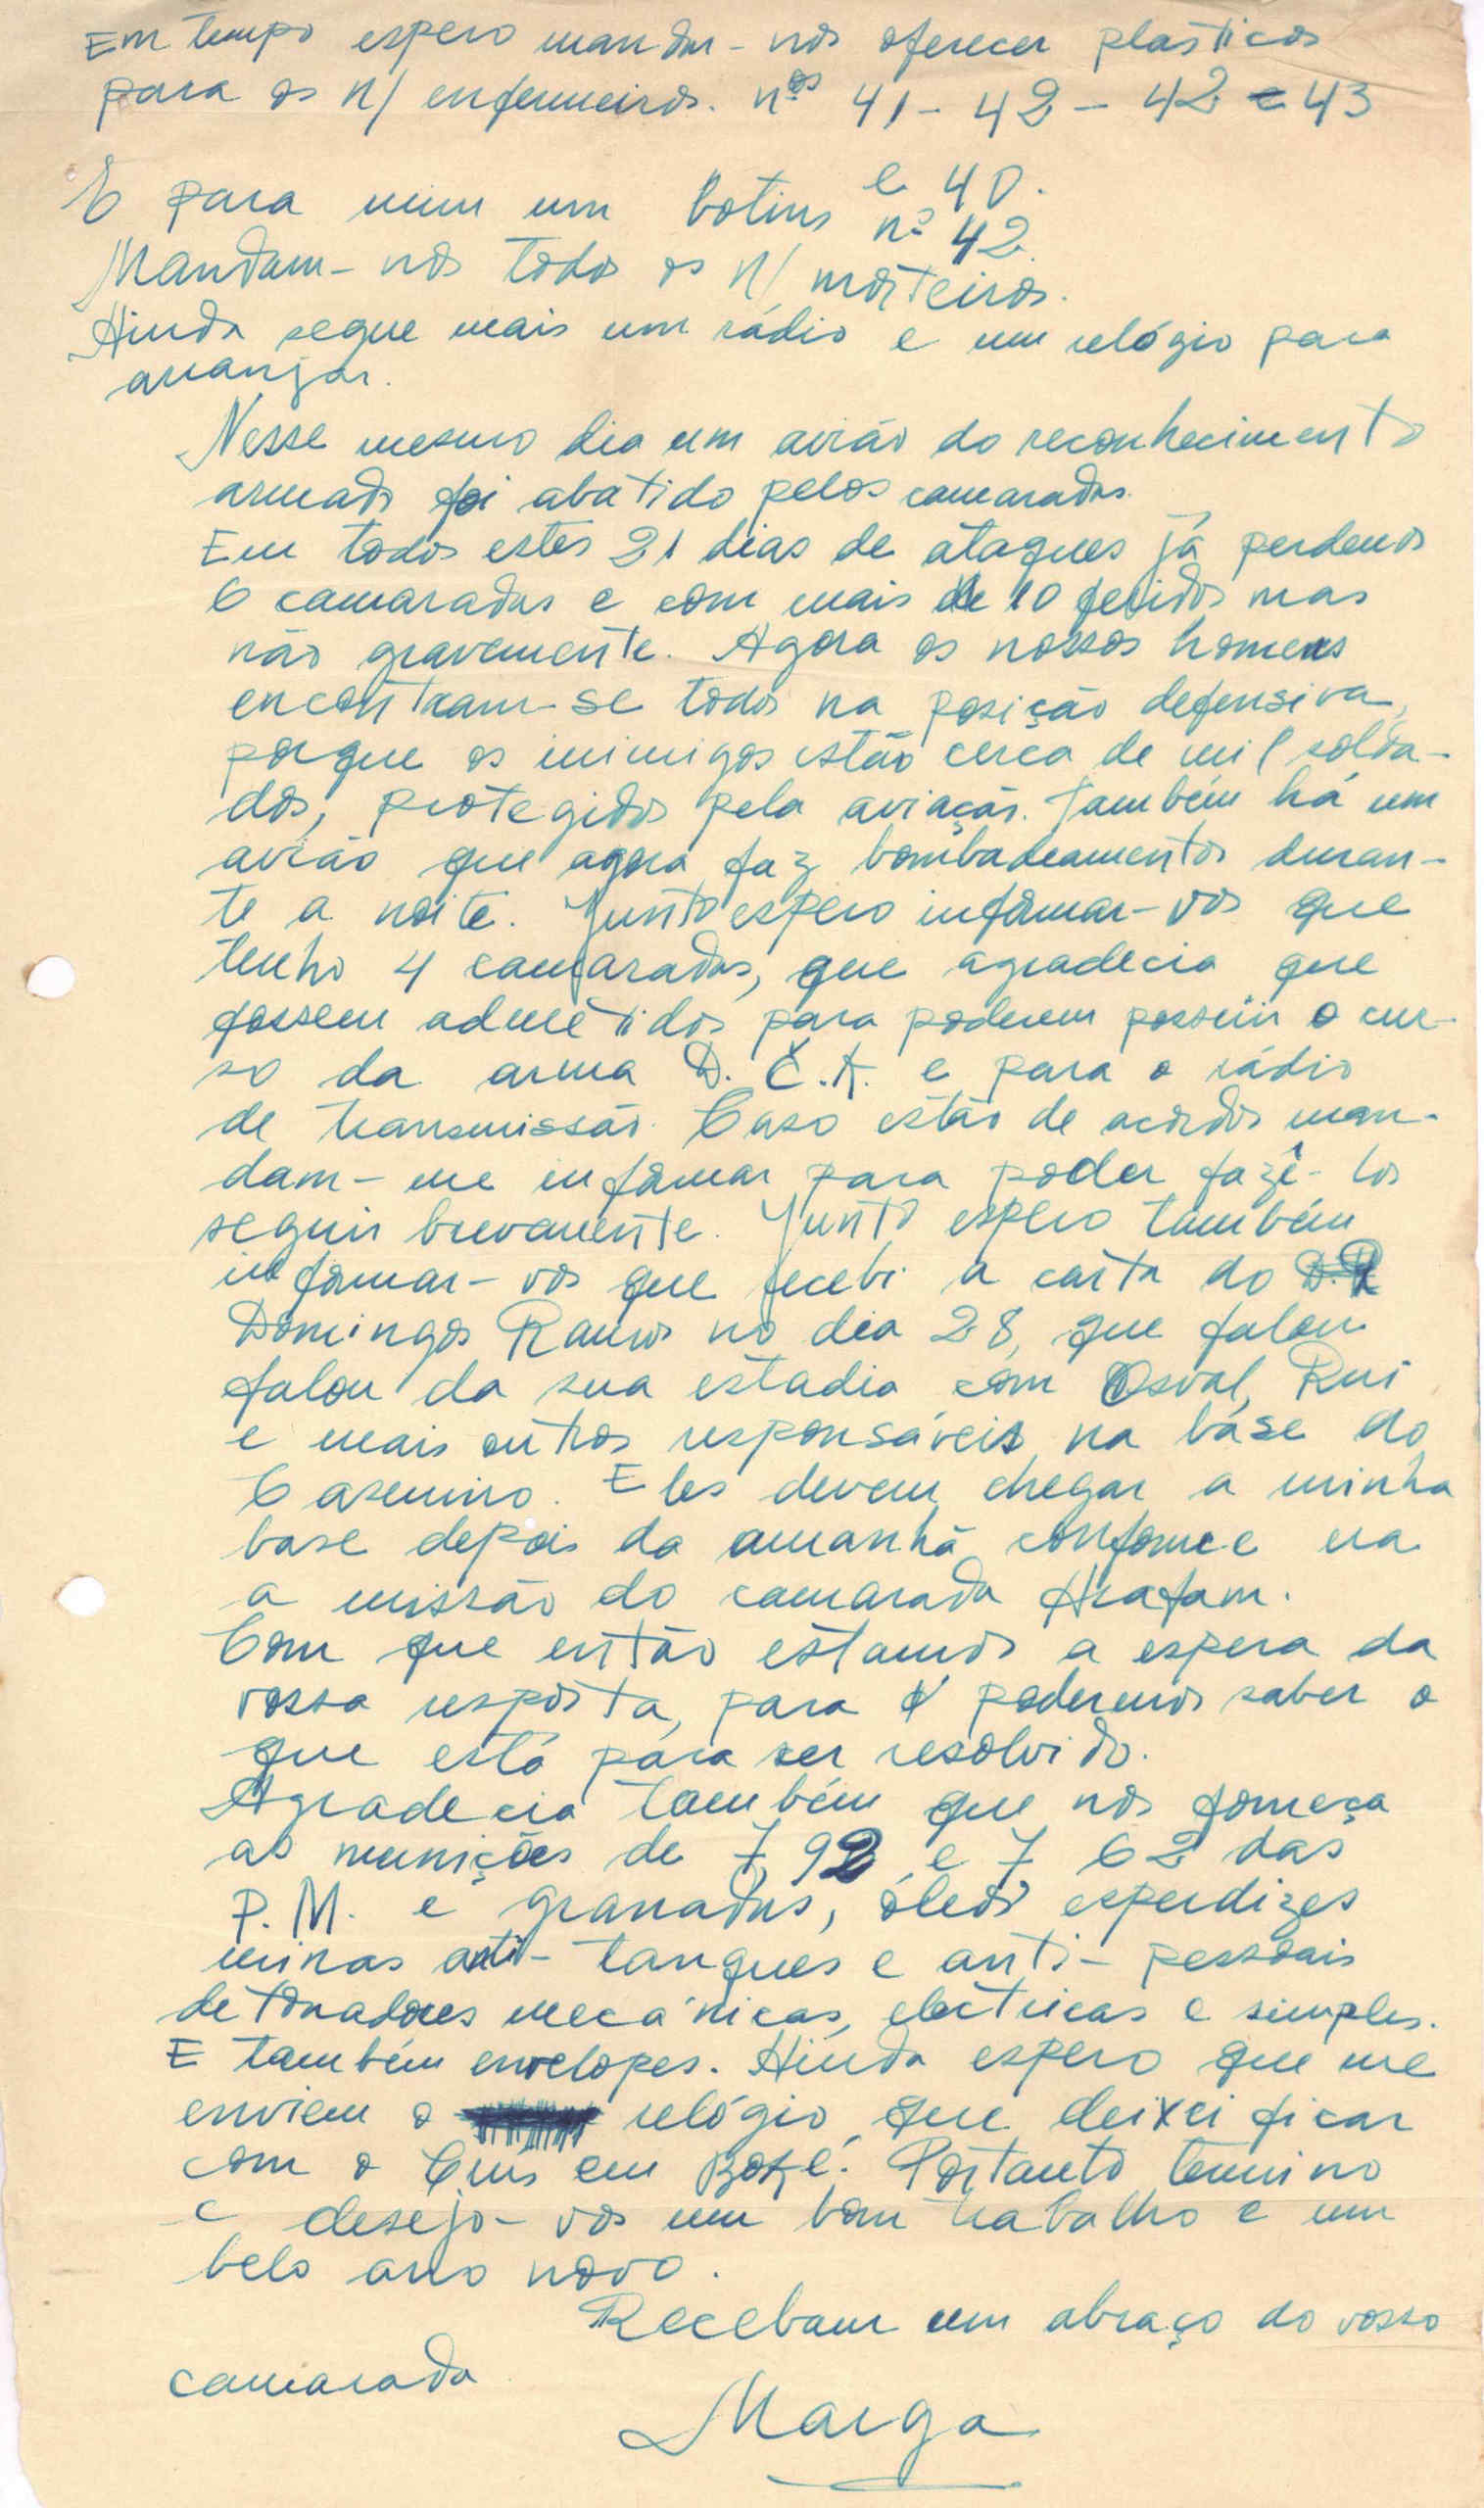 Em tempo espero mandar-nos oferecer plásticos
para os n/ enfermeiros. nºs 41 - 42 - 42 e 43
e 40.
E para mim um botins nº 42.
Mandam-nos todos os n/ morteiros.
Ainda segue mais um rádio e um relógio para
arranjar.
Nesse mesmo dia um avião do reconhecimento
armado foi abatido pelos camaradas.
Em todos estes 21 dias de ataques já perdemos
6 camaradas e com mais de 10 feridos mas
não gravemente. Agora os nossos homens
encontram-se todos na posição defensiva,
porque os inimigos estão cerca de mil solda-
dos, protegidos pela aviação. Também há um
avião que agora faz bombadeamentos duran-
te a noite. Junto espero informar-vos que
tenho 4 camaradas, que agradecia que
fossem admetidos para poderem possuir o cur-
so da arma D.C.A. e para o rádio
de transmissão. Caso estão de acordos man-
dam-me informar para poder fazê-los
seguir brevemente. Junto espero também
informar-vos que recebi a carta do D.R
Domingos Ramos no dia 28, que falou
falou da sua estadia com Osval, Rui
e mais outros responsáveis na base do
Casemiro. Eles devem chegar a minha
base depois da amanhã conforme era
a missão do camarada Arafam.
Com que então estamos a espera da
vossa resposta, para podermos saber o
que está para ser resolvido.
Agradecia também que nos forneça
as munições de 7,92 e 7 62 das
P.M. e granadas, óleos esperdizes
minas anti-tanques e anti-pessoais
detonadores mecánicas, electricas e simples.
E também envelopes. Ainda espero que me
enviem o relógio que deixei ficar
com o Cruz em Boké. Portanto termino
e desejo-vos um bom trabalho e um
belo ano novo.
Recebam um abraço do vosso
camarada
Marga